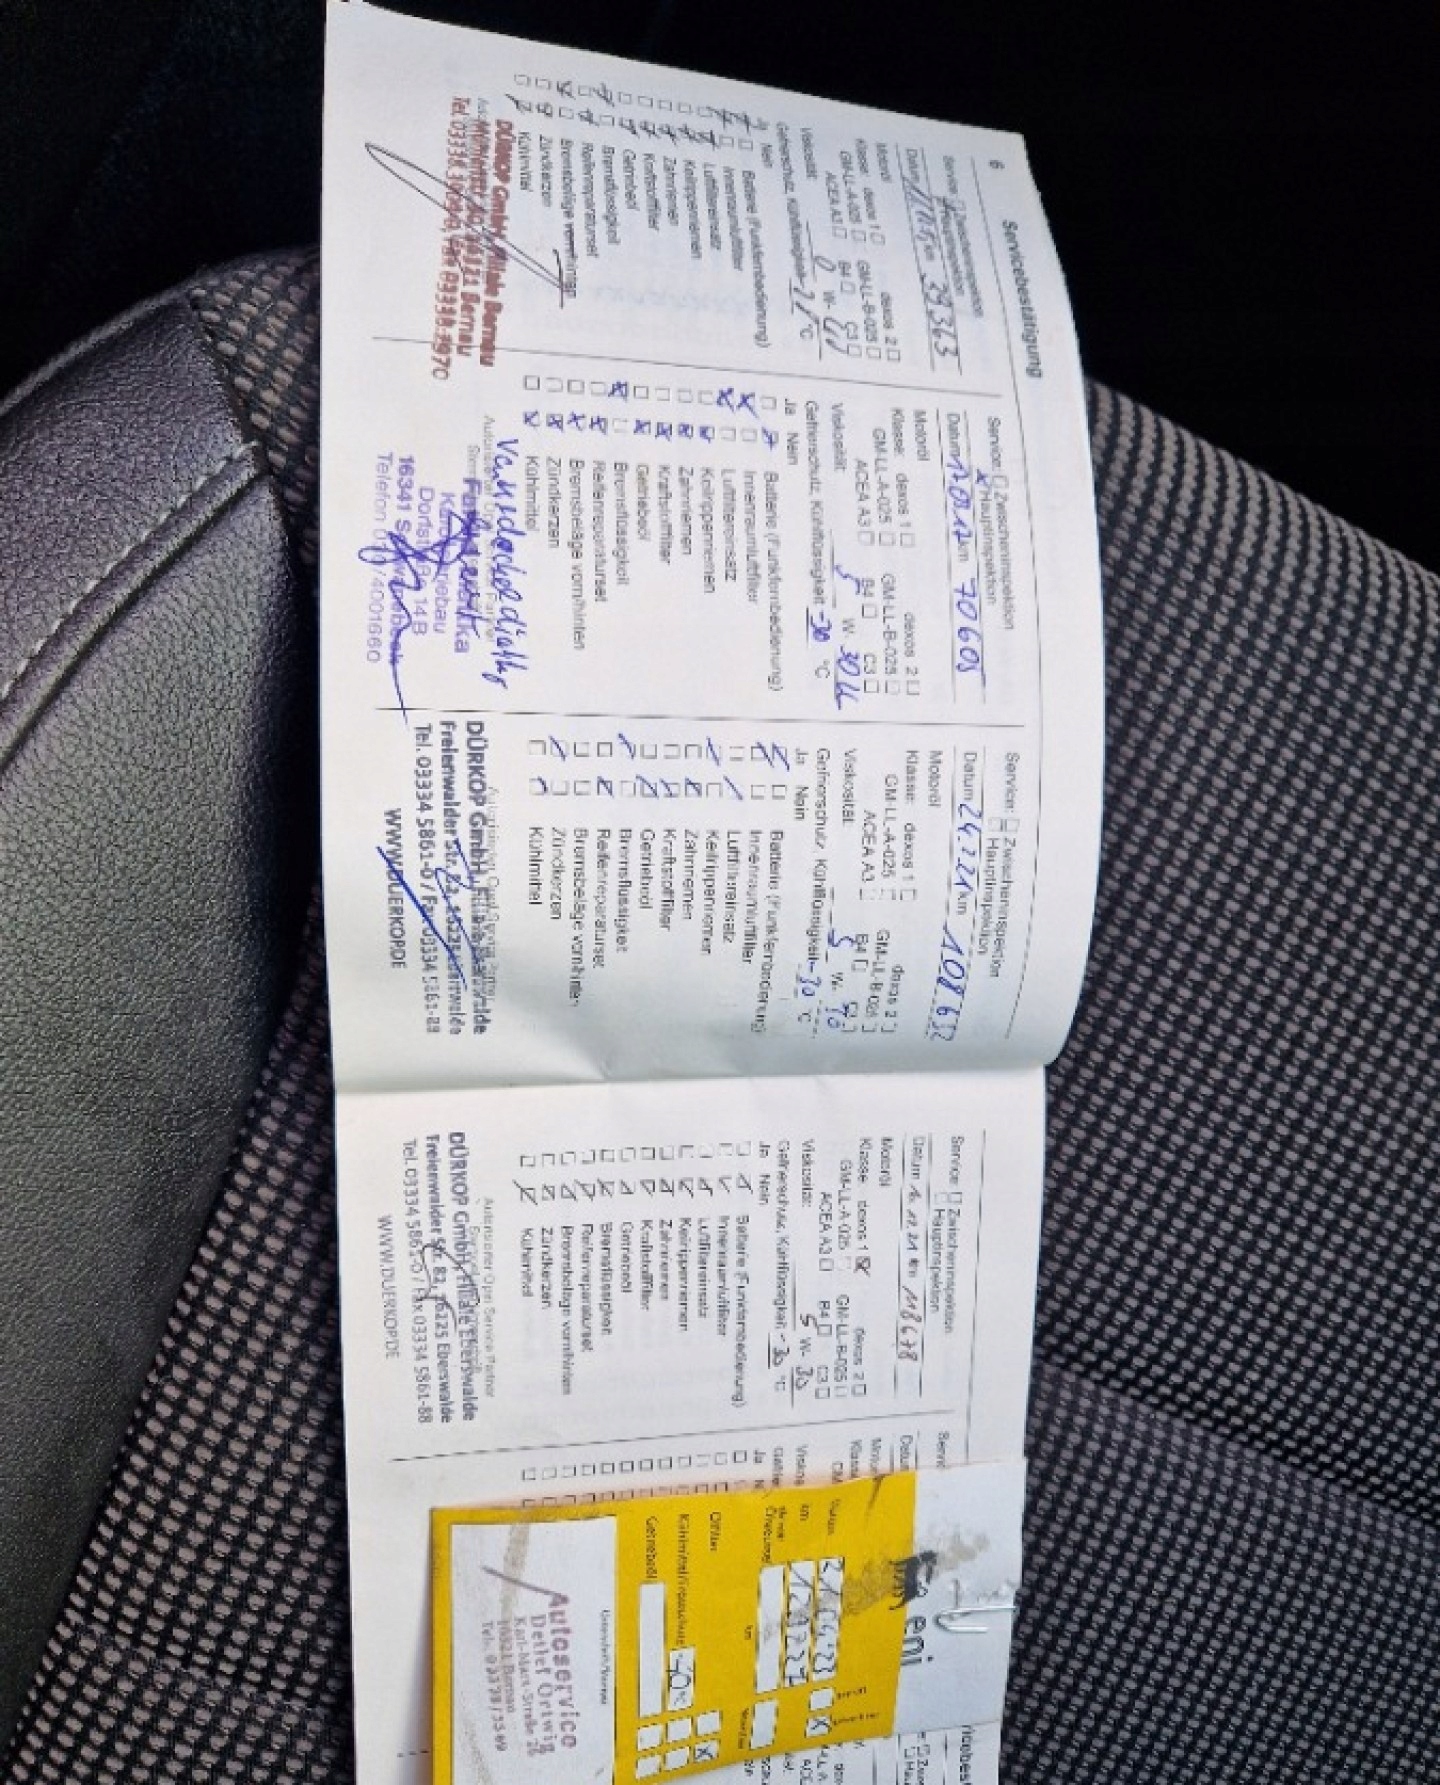 6
Servicebestätigung
Service: Zwischeninspektion
Hauptinspektion
Datum km 39363
Motoröl
Klasse: dexos 1 dexos 2
GM-LL-A-025 GM-LL-B-025
ACEA A3 B4 C3
Viskosität: 0 W-
Gefrierschutz, Kühlflüssigkeit °C
Ja Nein
Batterie (Funkfernbedienung)
Innenraumluftfilter
Luftfiltereinsatz
Keilrippenriemen
Zahnriemen
Kraftstofffilter
Getriebeöl
Bremsflüssigkeit
Reifenreparaturset
Bremsbeläge vorn/hinten
Zündkerzen
Kühlmittel
DÜRKOP GmbH, Filiale Bernau
16321 Bernau
Service: Zwischeninspektion
Hauptinspektion
Datum km 70605
Motoröl
Klasse: dexos 1 dexos 2
GM-LL-A-025 GM-LL-B-025
ACEA A3 B4 C3
Viskosität: 5 W 30
Gefrierschutz, Kühlflüssigkeit -30 °C
Ja Nein
Batterie (Funkfernbedienung)
Innenraumluftfilter
Luftfiltereinsatz
Keilrippenriemen
Zahnriemen
Kraftstofffilter
Getriebeöl
Bremsflüssigkeit
Reifenreparaturset
Bremsbeläge vorn/hinten
Zündkerzen
Kühlmittel
Dorfstraße 14B
16341
Telefon /4001660
Service: Zwischeninspektion
Hauptinspektion
Datum 24.2.21 km 108632
Motoröl
Klasse: dexos 1 dexos 2
GM-LL-A-025 GM-LL-B-025
ACEA A3 B4 C3
Viskosität: 5 W-
Gefrierschutz, Kühlflüssigkeit -30 °C
Ja Nein
Batterie (Funkfernbedienung)
Innenraumluftfilter
Luftfiltereinsatz
Keilrippenriemen
Zahnriemen
Kraftstofffilter
Getriebeöl
Bremsflüssigkeit
Reifenreparaturset
Bremsbeläge vorn/hinten
Zündkerzen
Kühlmittel
DÜRKOP GmbH, Filiale Eberswalde
Freienwalder Str. 82, 16225 Eberswalde
Tel. 03334 5861-0 / Fax 03334 5861-88
WWW.DUERKOP.DE
Service: Zwischeninspektion
Hauptinspektion
Datum .12.21 km 118678
Motoröl
Klasse: dexos 1 dexos 2
GM-LL-A-025 GM-LL-B-025
ACEA A3 B4 C3
Viskosität: 5 W- 30
Gefrierschutz, Kühlflüssigkeit -30 °C
Ja Nein
Batterie (Funkfernbedienung)
Innenraumluftfilter
Luftfiltereinsatz
Keilrippenriemen
Zahnriemen
Kraftstofffilter
Getriebeöl
Bremsflüssigkeit
Reifenreparaturset
Bremsbeläge vorn/hinten
Zündkerzen
Kühlmittel
Autorisierter Opel Service Partner
DÜRKOP GmbH, Filiale Eberswalde
Freienwalder Str. 82, 16225 Eberswalde
Tel. 03334 5861-0 / Fax 03334 5861-88
WWW.DUERKOP.DE
eni
Datum
km
Ölfilter
Kühlmittel/Frostschutz -40 °C
Getriebeöl
Autoservice
Detlef Ortwig
Karl-Marx-Straße 26
Bernau